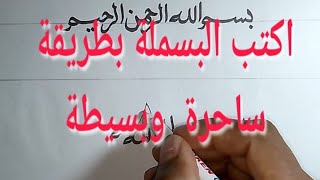 بسم الله الرحمن الرحيم
اكتب البسملة بطريقة
ساحرة وبسيطة